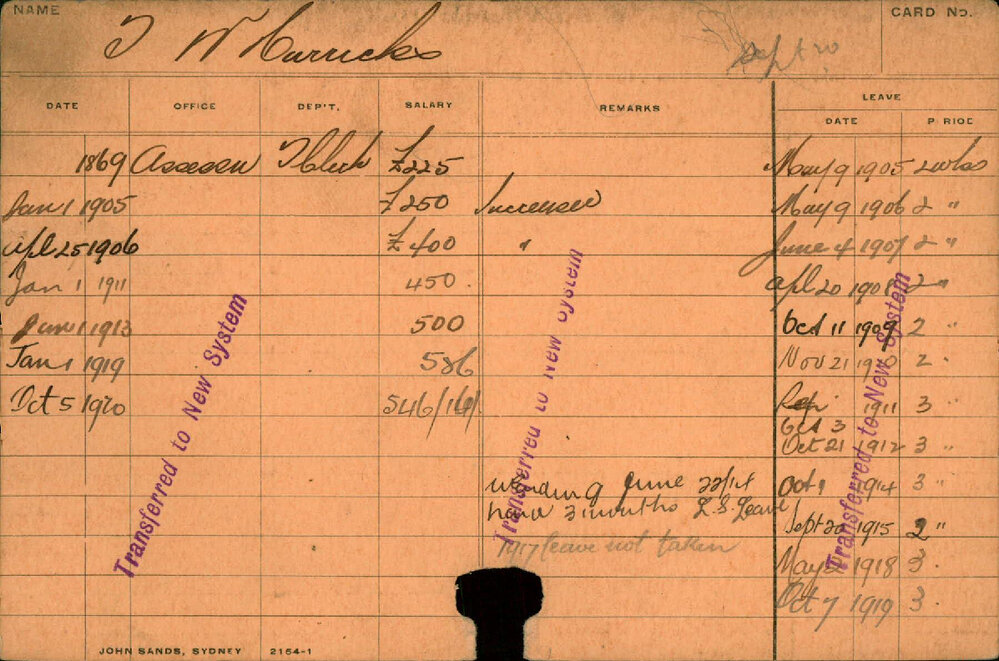 NAME
T W Harricks
CARD No.
Sept 20
DATE OFFICE DEP'T. SALARY REMARKS LEAVE
DATE PERIOD
1869 Assessor T Clerk £225 May 9 1905 2 wks
Jan 1 1905 £250 Increased May 9 1906 2 "
Apl 25 1906 £400 " June 4 1907 2 "
Jan 1 1911 450. Apl 20 1908 2 "
Jan 1 1913 500 Oct 11 1909 2 "
Jan 1 1919 586 Nov 21 1910 2 "
Oct 5 1920 546/16/ 1911 3 "
Oct 3
Oct 21 1912 3 "
June 22/14 Oct 1 1914 3 "
have 3 months L.S. Leave
Sept 20 1915 2 "
1917 leave not taken
May 1918 3 "
Oct 7 1919 3 "
Transferred to New System
Transferred to New System
Transferred to New System
JOHN SANDS, SYDNEY 2154-1